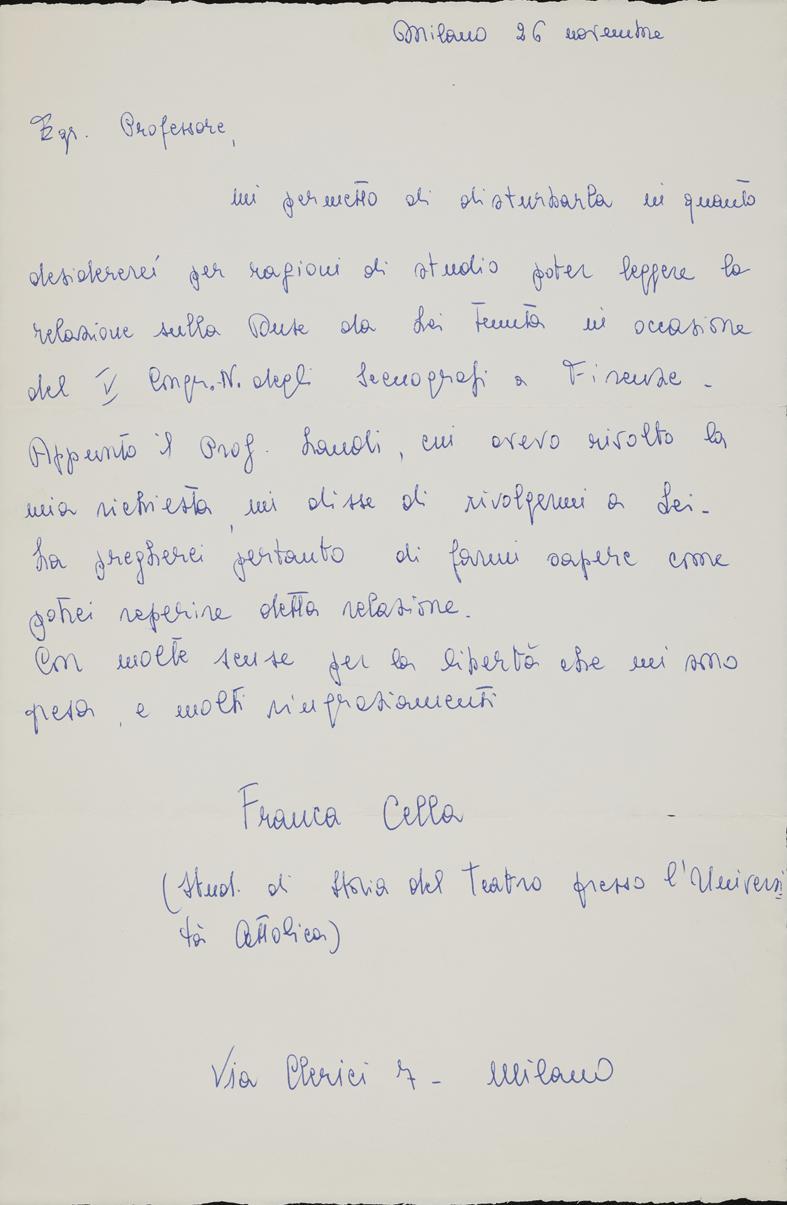 Milano 26 novembre
Egr. Professore,
mi permetto di disturbarla in quanto
desidererei per ragioni di studio poter leggere la
relazione sulla Duse da Lei tenuta in occasione
del V Congr. N. degli Scenografi a Firenze -
Appunto il Prof. Landi, cui avevo rivolto la
mia richiesta, mi disse di rivolgermi a Lei -
La pregherei pertanto di farmi sapere come
potrei reperire detta relazione.
Con molte scuse per la libertà che mi sono
presa, e molti ringraziamenti
Franca Cella
(Stud. di Storia del Teatro presso l'Universi
tà Cattolica)
Via Clerici 7 - Milano